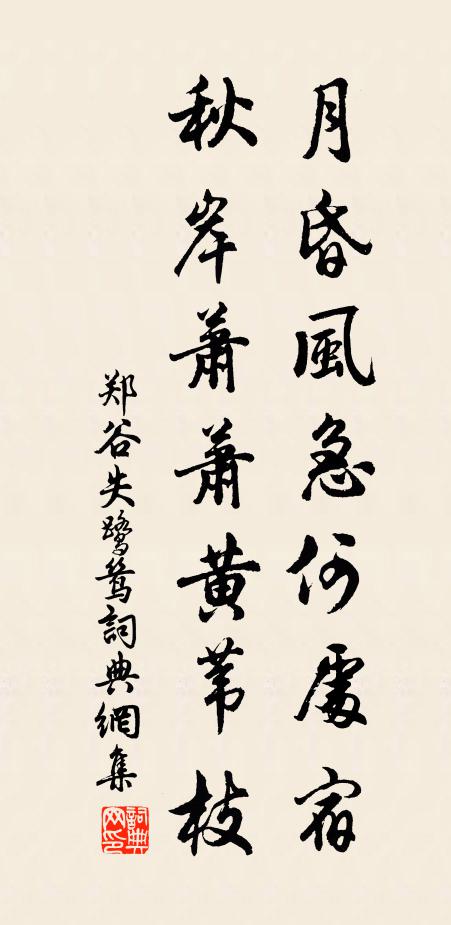 月昏風急何處宿
秋岸蕭蕭黃苇枝
郑谷失鹭鸶詞典網集
詞典網印